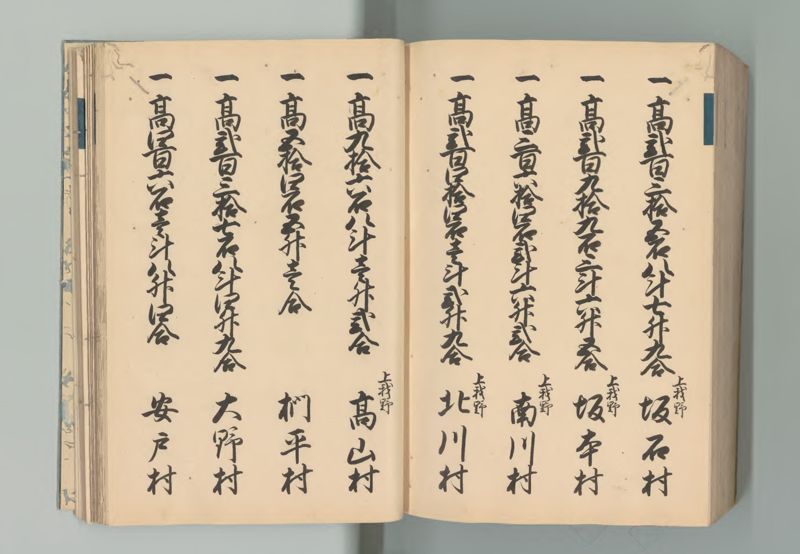 一 高弐百三拾五石八斗七升九合 上我野 坂石村
一 高弐百九拾九石三斗六升五合 上我野 坂本村
一 高三百六拾四石弐斗六升弐合 上我野 南川村
一 高弐百四拾四石壱斗弐升九合 上我野 北川村
一 高九拾六石八斗壱升弐合 上我野 高山村
一 高五拾四石五升壱合 椚平村
一 高弐百三拾七石八斗四升九合 大野村
一 高四百六石壱斗八升四合 安戸村